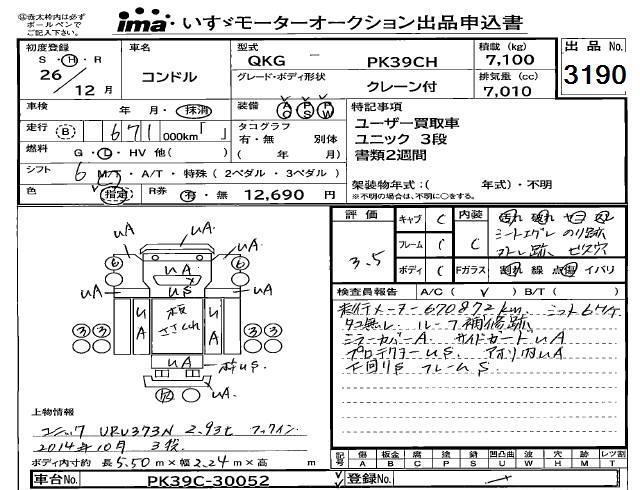 ㊟赤太枠内は必ず
ボールペンで
ご記入下さい。
ima いすゞモーターオークション出品申込書
初度登録 車名 型式 積載 (kg) 出品No.
S・H・R QKG － PK39CH 7,100
26 コンドル グレード・ボディ形状 排気量 (cc) 3190
12月 クレーン付 7,010
車検 年 月・抹消 装備 AC PS PW 特記事項
走行 (B) 671 000km「 」 タコグラフ ユーザー買取車
有・無 別体 ユニック 3段
燃料 G・L・HV 他( ) ( 年 月) 書類2週間
シフト 6 M/T・A/T・特殊(2ペダル・3ペダル) 架装物年式:( 年式)・不明
色 指定 R券 有・無 12,690 円 ※不明の場合は、不明に○をする。
評価 キャブ C 内装
3.5 フレーム C C シートエグレ のり跡
ボディ C Fガラス 割れ 線 点傷 イバリ
検査員報告 A/C ( ∨ ) B/T ( )
走行メーター670872km シフト6
タコ無し ルーフ補修跡
ミラーカバーA サイドガードUA
プロテクターUS アオリ内UA
下回りS フレームS
UA UA
UA
UA US UA
UA 板 UA
3 3 3 3
UA US
UA
上物情報
ユニック URV373N 2.93t フックイン
2014年10月 3段
ボディ内寸約 長5.50m×幅2.24m×高 m
記号 傷 板金 腐 塗 錆 凹凸曲 波 穴 跡 レツ割
A B C P S U W H M T
車台No. PK39C-30052 登録No.